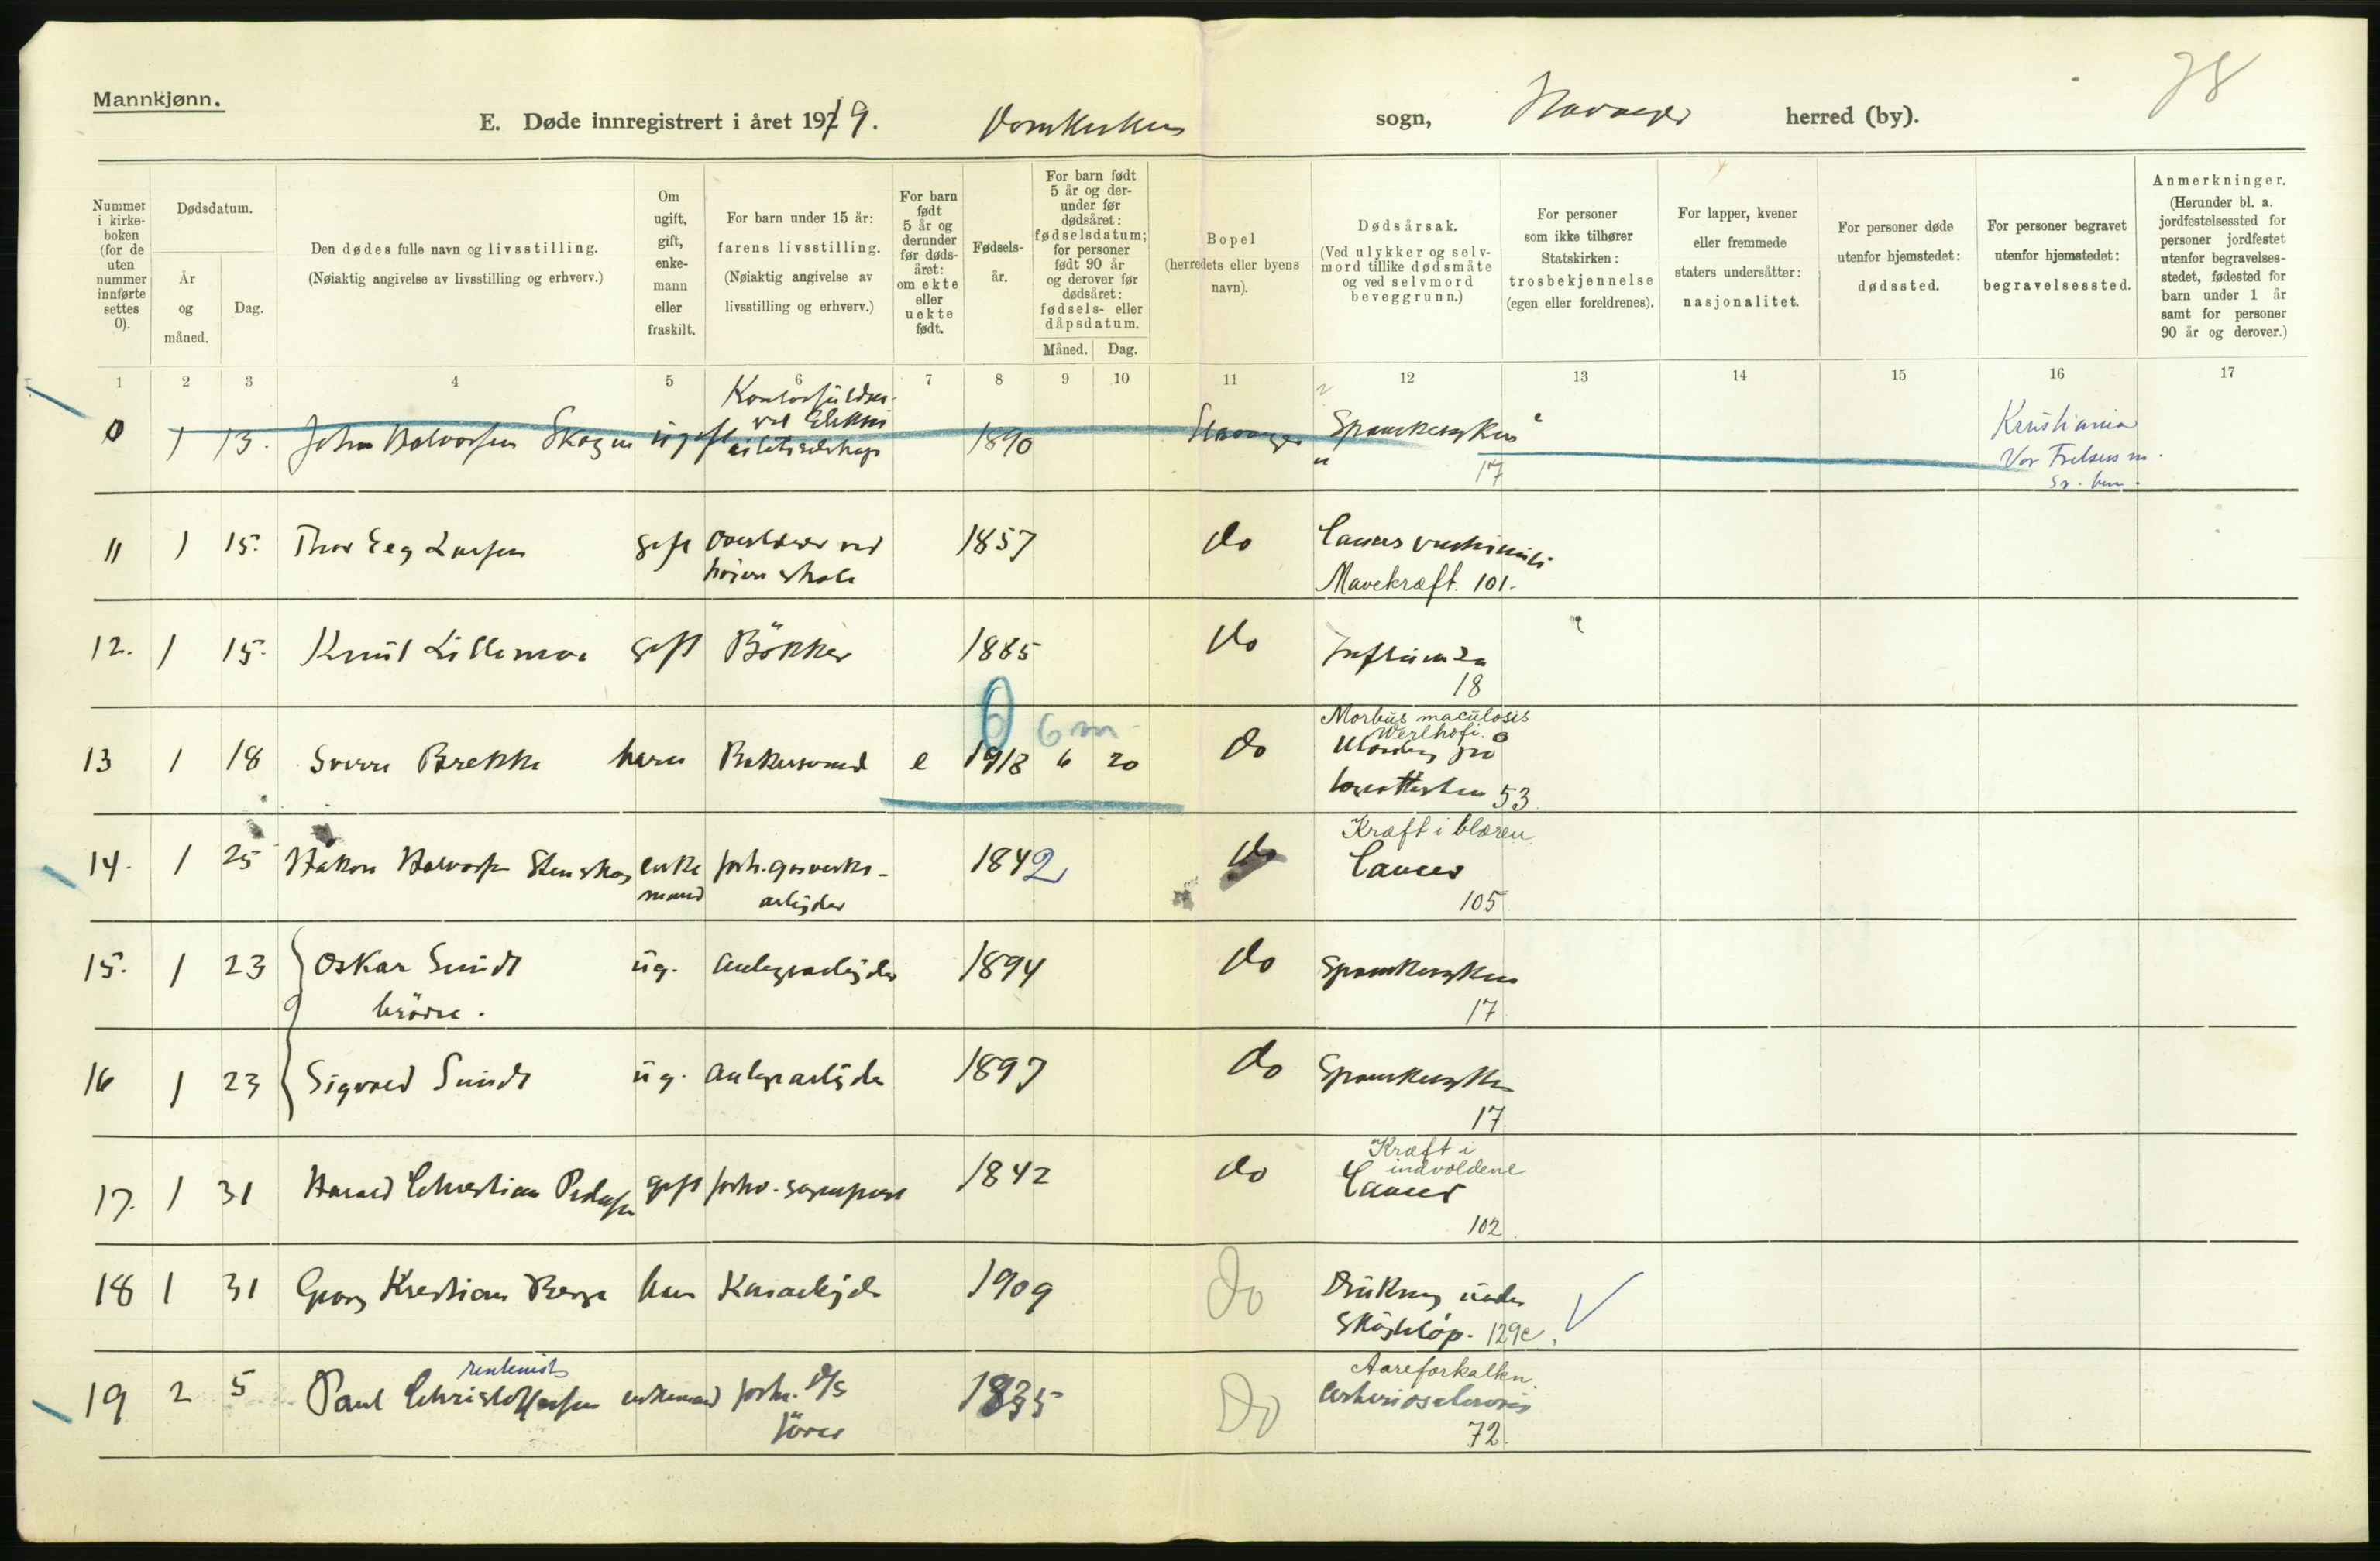 Mannkjønn.
E. Døde innregistrert i året 1919. Domkirken sogn, Stavanger herred (by).
78
Nummer i kirke-boken (for de uten nummer innførte settes 0).
Dødsdatum.
År og måned.
Dag.
Den dødes fulle navn og livsstilling.
(Nøiaktig angivelse av livsstilling og erhverv.)
Om ugift, gift, enke-mann eller fraskilt.
For barn under 15 år: farens livsstilling.
(Nøiaktig angivelse av livsstilling og erhverv.)
For barn født 5 år og derunder før døds-året: om ekte eller uekte født.
Fødsels-år.
For barn født 5 år og der-under før dødsåret: fødselsdatum; for personer født 90 år og derover før dødsåret: fødsels- eller dåpsdatum.
Måned. Dag.
Bopel (herredets eller byens navn).
Dødsårsak.
(Ved ulykker og selv-mord tillike dødsmåte og ved selvmord beveggrunn.)
For personer som ikke tilhører Statskirken: trosbekjennelse (egen eller foreldrenes).
For lapper, kvener eller fremmede staters undersåtter: nasjonalitet.
For personer døde utenfor hjemstedet: dødssted.
For personer begravet utenfor hjemstedet: begravelsessted.
Anmerkninger.
(Herunder bl. a. jordfestelsessted for personer jordfestet utenfor begravelses-stedet, fødested for barn under 1 år samt for personer 90 år og derover.)
1 2 3 4 5 6 7 8 9 10 11 12 13 14 15 16 17
0 1 13. John Halvorsen Skogen ugift 1890 Stavanger Spanskesyken 17 Kristiania Vor Frelsers
11 1 15. Thor Eeg Larsen gift Overlærer ved høiere skole 1857 do Cancer ventriculi
Mavekræft. 101.
12. 1 15. Knut Lillemoe gift Bøkker 1885 do Influenza
18
6 6 m
13 1 18 Sverre Brekke barn e 1918 6 20 do Morbus maculosis Werlhofi.
Blødning på
53.
14. 1 25 Håkon Halvorsen enke mand forh. gasverks-arbeider 1842 do Kræft i blæren
Cancer
105
15. 1 23 Oskar Sundt ug. Anlegsarbeider 1894 do Spanskesyken
brødre. 17
16 1 23 Sigvald Sundt ug. Anlegsarbeider 1897 do Spanskesyken
17
17. 1 31 Harald Christian Pedersen gift forhv. 1842 do Kræft i indvoldene
Cancer
102.
18 1 31 Georg Kristian Berge barn 1909 do Drukning under
Skøiteløp. 129e.
rentenist
19 2 5 Paul Christoffersen enkemand forh. D/S fører 1835 Do Aareforkalkn.
Arteriosclerosis
72.